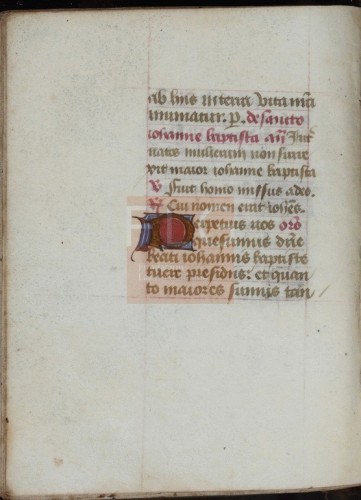 ab huis
muniatur. p. de sancto
iohanne baptista añ Int'
natos mulierum non surre
xit maior iohanne baptista
v Fuit homo missus a deo.
R Cui nomen erat iohes.
Perpetuis nos oro
quesumus dñe
beati iohannis baptiste
tuere presidiis: et quan
to maiores sumus tan